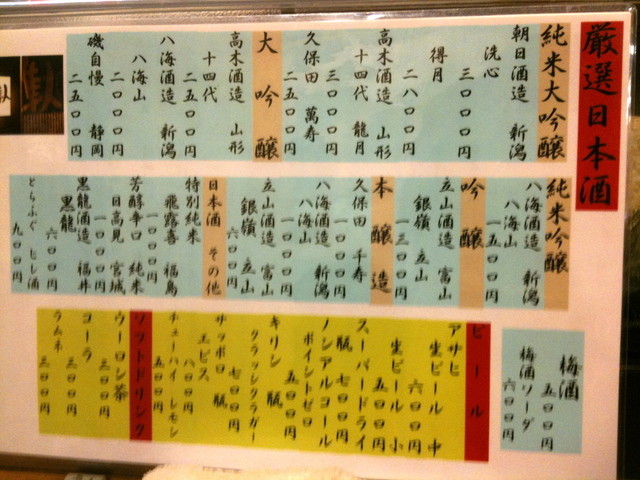 厳選日本酒
純米大吟醸
朝日酒造 新潟
洗心
三〇〇〇円
得月
二八〇〇円
高木酒造 山形
十四代 龍月
三〇〇〇円
久保田 萬寿
二五〇〇円
大吟醸
高木酒造 山形
十四代
二五〇〇円
八海酒造 新潟
八海山
二〇〇〇円
磯自慢 静岡
二五〇〇円
純米吟醸
八海酒造 新潟
八海山
一五〇〇円
吟醸
立山酒造 富山
銀嶺 立山
一三〇〇円
本醸造
久保田 千寿
一〇〇〇円
八海酒造 新潟
八海山
一〇〇〇円
立山酒造 富山
銀嶺 立山
六〇〇円
日本酒 その他
特別純米
飛露喜 福島
一〇〇〇円
芳醇辛口 純米
日高見 宮城
一〇〇〇円
黒龍酒造 福井
黒龍
六〇〇円
とらふぐ ヒレ酒
九〇〇円
梅酒
五〇〇円
梅酒ソーダ
六〇〇円
ビール
アサヒ
生ビール 中
六〇〇円
生ビール 小
五〇〇円
スーパードライ
瓶 七〇〇円
ノンアルコール
ポイントゼロ
五〇〇円
キリン 瓶
クラシックラガー
七〇〇円
サッポロ 瓶
エビス
八〇〇円
チューハイ レモン
五〇〇円
ソフトドリンク
ウーロン茶
三〇〇円
コーラ
三〇〇円
ラムネ
三〇〇円